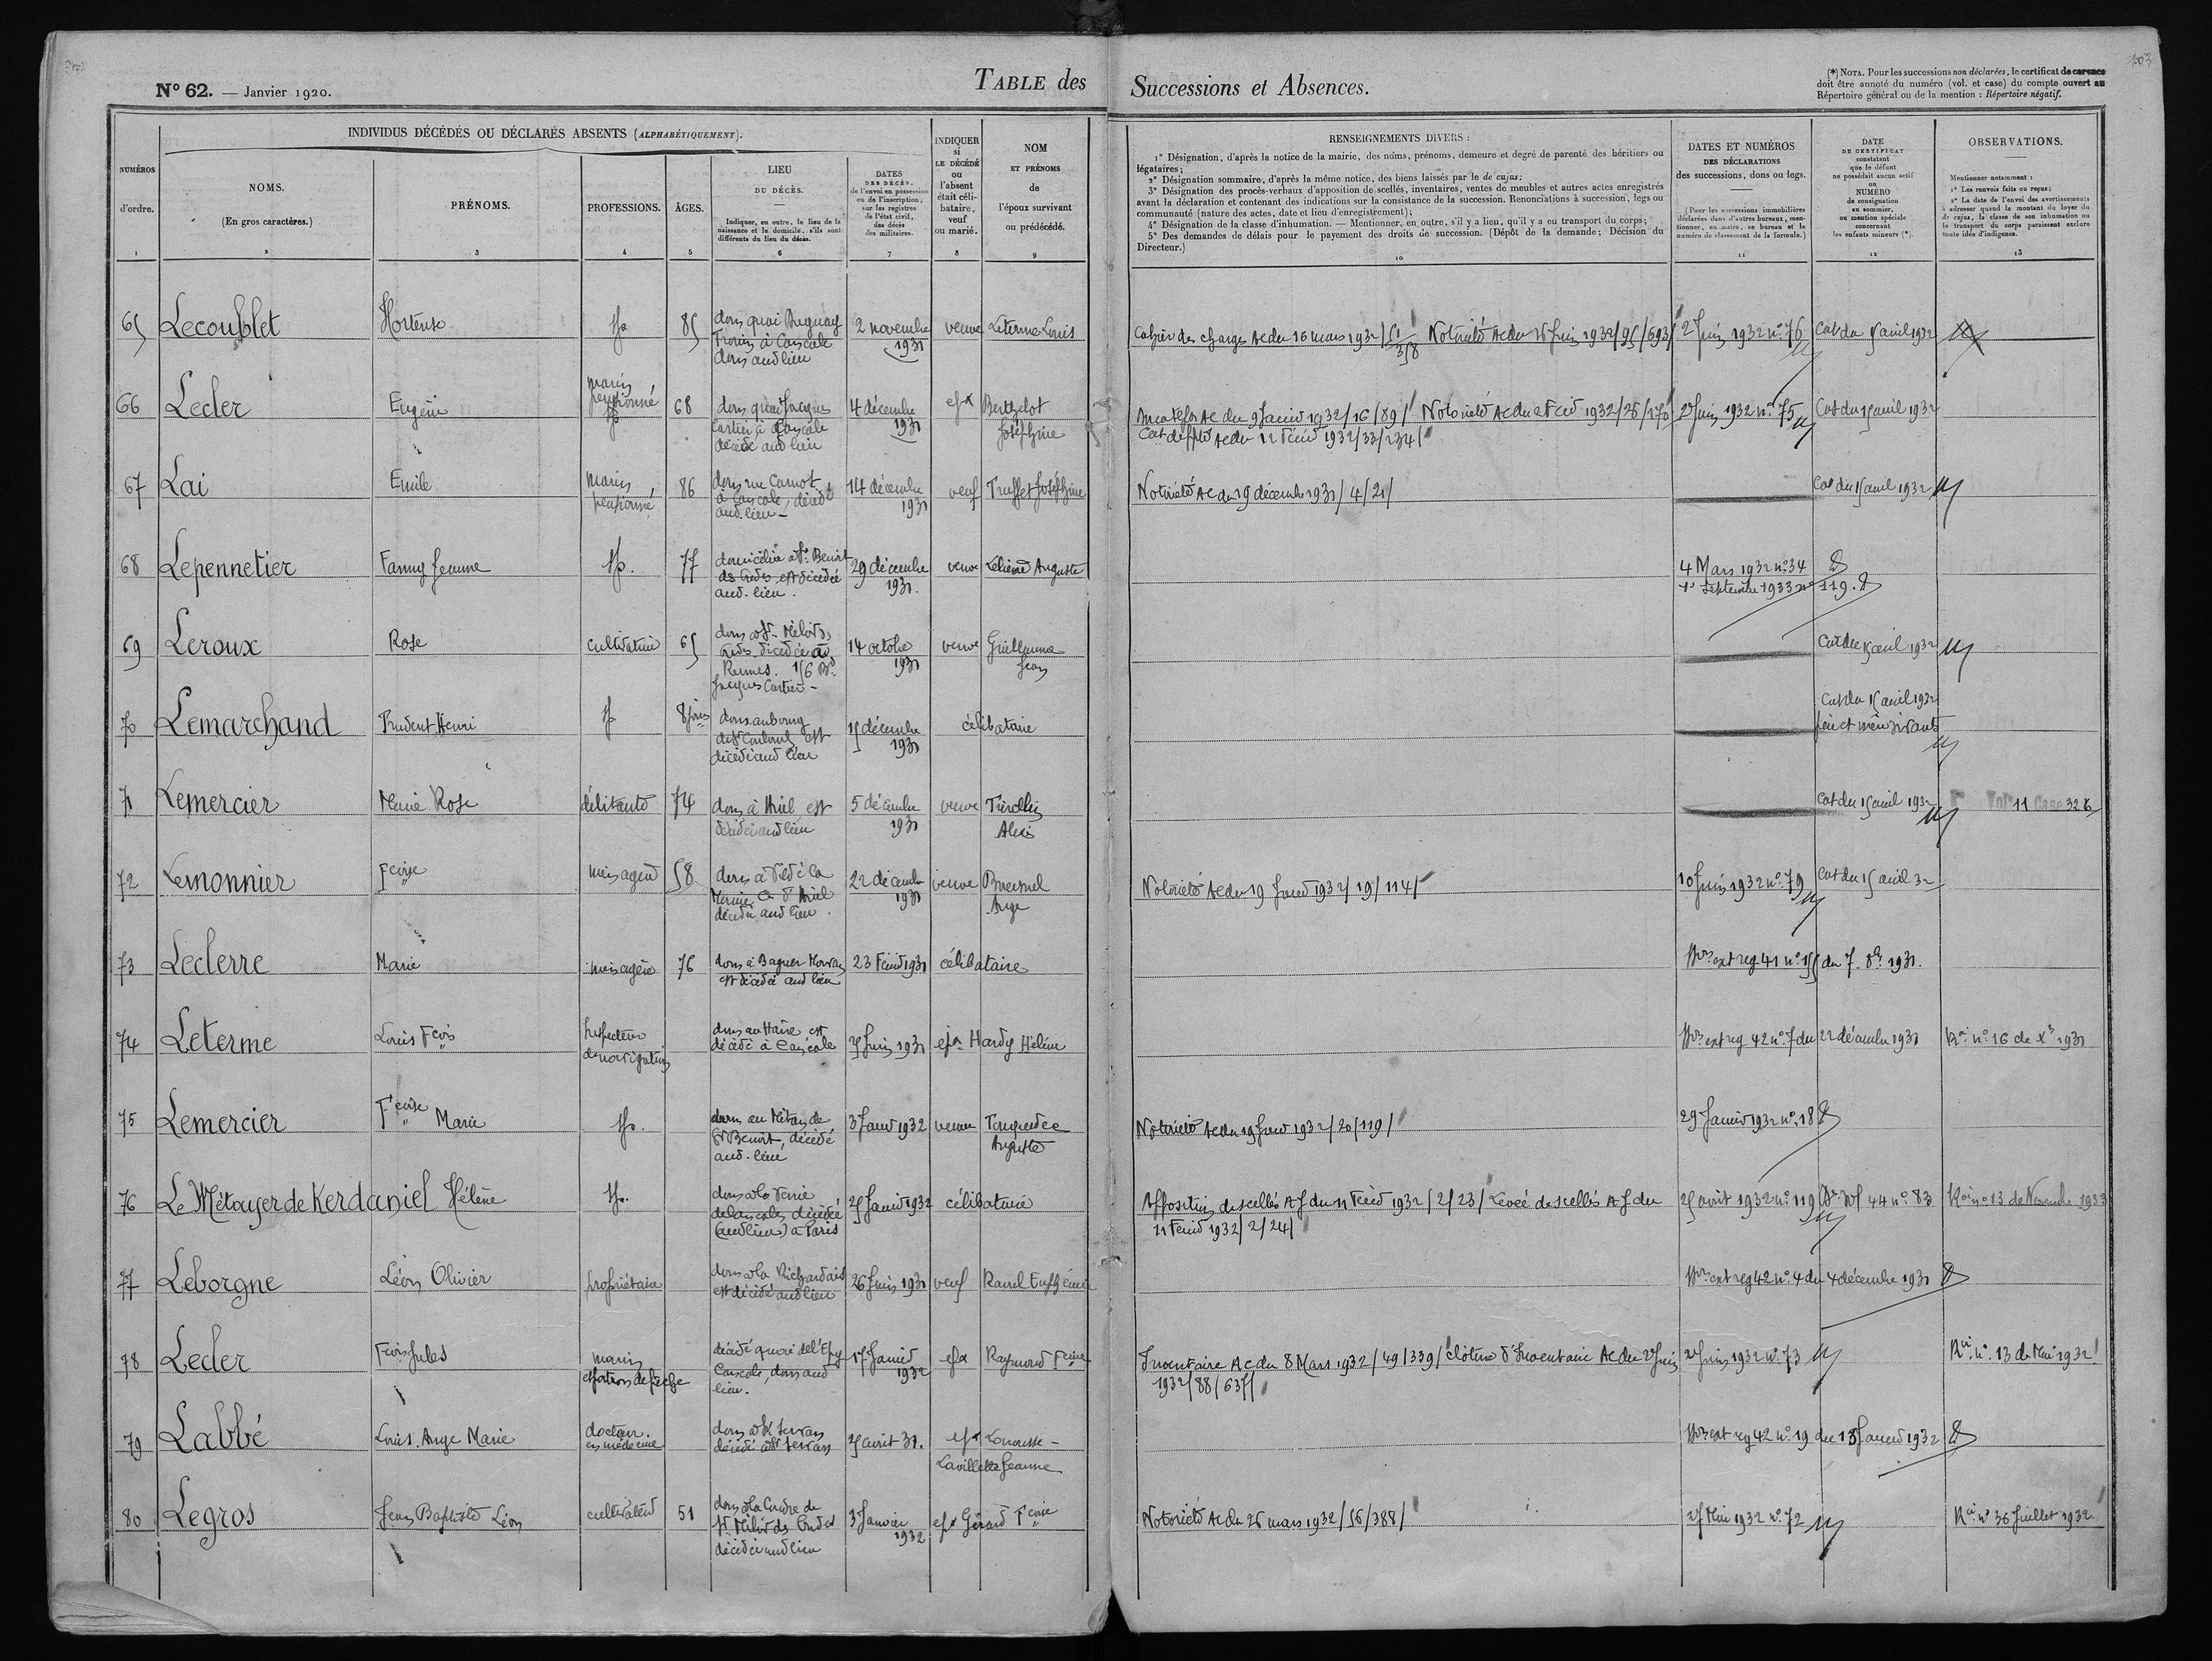 103
N° 62. — Janvier 1920.
TABLE des Successions et Absences.
(*) NOTA. Pour les successions non déclarées, le certificat de carence
doit être annoté du numéro (vol. et case) du compte ouvert au
Répertoire général ou de la mention : Répertoire négatif.
INDIVIDUS DÉCÉDÉS OU DÉCLARÉS ABSENTS (ALPHABÉTIQUEMENT).
NUMÉROS d'ordre. 1
NOMS. (En gros caractères.) 2
PRÉNOMS. 3
PROFESSIONS. 4
ÂGES. 5
LIEU DU DÉCÈS. — Indiquer, en outre, le lieu de la naissance et le domicile, s'ils sont différents du lieu du décès. 6
DATES DES DÉCÈS, de l'envoi en possession ou de l'inscription, sur les registres de l'état civil, des décès des militaires. 7
INDIQUER si LE DÉCÉDÉ ou l'absent était célibataire, veuf ou marié. 8
NOM ET PRÉNOMS de l'époux survivant ou prédécédé. 9
RENSEIGNEMENTS DIVERS :
1° Désignation, d'après la notice de la mairie, des noms, prénoms, demeure et degré de parenté des héritiers ou
légataires;
2° Désignation sommaire, d'après la même notice, des biens laissés par le de cujus;
3° Désignation des procès-verbaux d'apposition de scellés, inventaires, ventes de meubles et autres actes enregistrés
avant la déclaration et contenant des indications sur la consistance de la succession. Renonciations à succession, legs ou
communauté (nature des actes, date et lieu d'enregistrement);
4° Désignation de la classe d'inhumation. — Mentionner, en outre, s'il y a lieu, qu'il y a eu transport du corps;
5° Des demandes de délais pour le payement des droits de succession. (Dépôt de la demande; Décision du
Directeur.)
10
DATES ET NUMÉROS DES DÉCLARATIONS des successions, dons ou legs. — (Pour les successions immobilières déclarées dans d'autres bureaux, mentionner, en outre, ce bureau et le numéro de classement de la formule.) 11
DATE DU CERTIFICAT constatant que le défunt ne possédait aucun actif ou NUMÉRO de consignation au sommier, ou mention spéciale concernant les enfants mineurs (*). 12
OBSERVATIONS. — Mentionner notamment : 1° Les renvois faits ou reçus; 2° La date de l'envoi des avertissements à adresser quand le montant du loyer du de cujus, la classe de son inhumation ou le transport du corps paraissent exclure toute idée d'indigence. 13
65 Lecoublet Hortense sp 85 dom quai Duguay Trouin à Cancale dom aud lieu 2 novembre 1931 veuve Leterme Louis Cahier des charges Ac du 16 mars 1932/51/358 Notoriété Ac du Juin 1932/95/693/ 2 Juin 1932 n° 76 Cat du 15 avril 1932
66 Lecler Eugène marin pensionné sp 68 dom quai Jacques Cartier à Cancale décédé aud lieu 4 décembre 1931 epx Berthelot Joséphine Ac du 9 Janvr 1932/16/89/ Notoriété Ac du 2 Fév 1932/26/170/ Cat de Ac du 12 Févr 1932/33/234/ 2 Juin 1932 n° 75 Cat du 15 avril 1932
67 Lai Emile marin pensionné 86 dom rue Carnot à Cancale, décédé aud. lieu – 14 décembre 1931 veuf Truffet Joséphine Notoriété Ac du 19 décembre 1931/4/21/ Cat du 15 avril 1932
68 Lepennetier Fanny Jeanne sp. 77 domiciliée à St Benoit des Ondes, est décédée aud. lieu. 29 décembre 1931. veuve Lelièvre Auguste 4 Mars 1932 n° 34 1er Septembre 1933 n° 119.
69 Leroux Rose cultivatrice 65 dom à St Méloir des Ondes décédée à Rennes. 156 Bd Jacques Cartier – 14 octobre 1931 veuve Guillaume Jean Cat du 15 avril 1932
70 Lemarchand Prudent Henri sp 8 jours dom. au bourg de St Coulomb est décédé aud lieu 15 décembre 1931 célibataire Cat du 15 avril 1932 père et mère vivants
71 Lemercier Marie Rose débitante 74 dom à Hirel est décédée aud lieu 5 décembre 1931 veuve Alexis Cat du 15 avril 1932 Vol 11 Case 326
72 Lemonnier Fçoise ménagère 58 dom à Vildé la Marine Cne d'Hirel décédée aud lieu. 22 décembre 1931 veuve Ange Notoriété Ac du 19 Janvr 1932/19/114/ 10 Juin 1932 n° 79 Cat du 15 avril 32
73 Leclerre Marie ménagère 76 dom à Baguer Morvan est décédée aud lieu 23 Févr 1931 célibataire ext reg 41 n° 155 du 7. 8bre 1931.
74 Leterme Louis Fçois Inspecteur de navigation dom au Havre est décédé à Cancale 7 Juin 1931 epx Hardy Hélène ext reg 42 n° 7 du 22 décembre 1931 Rvoi n° 16 de Xbre 1931
75 Lemercier Fçoise Marie sp. dom au Mitan de St Benoit, décédé aud. lieu 3 Janvr 1932 veuve Tenguedec Auguste Notoriété Ac du 19 Janvr 1932/20/119/ 29 Janvier 1932 n° 18
76 Le Métayer de Kerdaniel Hélène sp. dom à la Verrie de Cancale, décédée (aud lieu) à Paris 25 Janvr 1932 célibataire Apposition de scellés AJ du 11 Févr 1932/2/23/ Levée de scellés AJ du 11 Févr 1932/2/24/ 25 avril 1932 n° 119 44 n° 83 Rvoi n° 13 de Novembre 1933
77 Leborgne Léon Olivier propriétaire dom à la Richardais est décédé aud lieu 26 Juin 1931 veuf Raurel Euphémie ext reg 42 n° 4 du 4 décembre 1931
78 Lecler Fçois Jules marin et patron de pêche décédé quai de l'Epi Cancale, dom aud lieu. 17 Janvier 1932 epx Raymond Fçoise Inventaire Ac du 8 Mars 1932/49/339/ clôture d'Inventaire Ac du 2 Juin 1932/88/637/ 2 Juin 1932 n° 73 Rvoi n° 13 de Mai 1932
79 Labbé Louis. Ange Marie docteur. en médecine dom à St Servan décédé à St Servan 25 avril 31. epx Larousse – Lavillette Jeanne ext reg 42 n° 19 du 18 Janvier 1932
80 Legros Jean Baptiste Léon cultivateur 51 dom à la Coudre de St Méloir des Ondes décédé aud lieu 3 Janvier 1932 epx Gérard Fçoise Notoriété Ac du 26 mars 1932/56/388/ 27 Mai 1932 n° 72 Rvoi n° 36 Juillet 1932.